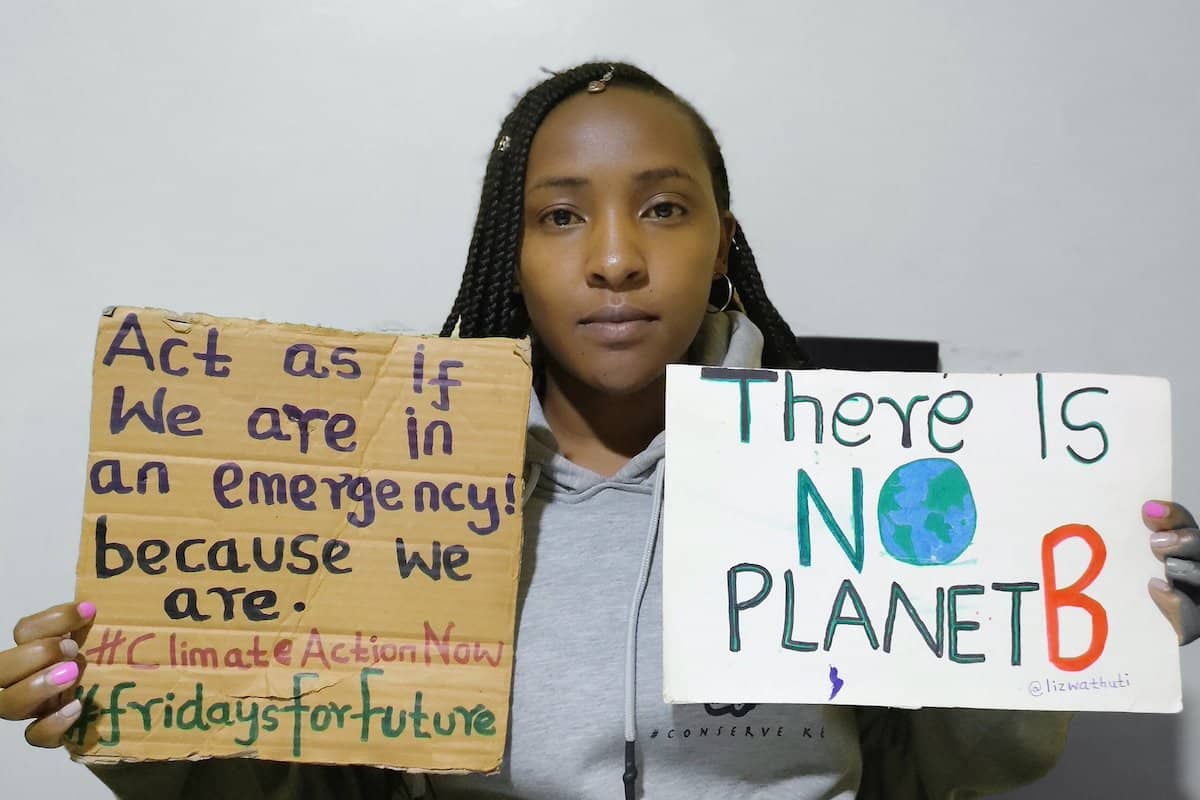 Act as if
We are in
an emergency!
because we
are.
#ClimateActionNow
#fridaysforfuture
There Is
NO
PLANET B
@lizwathuti
#CONSERVE KE